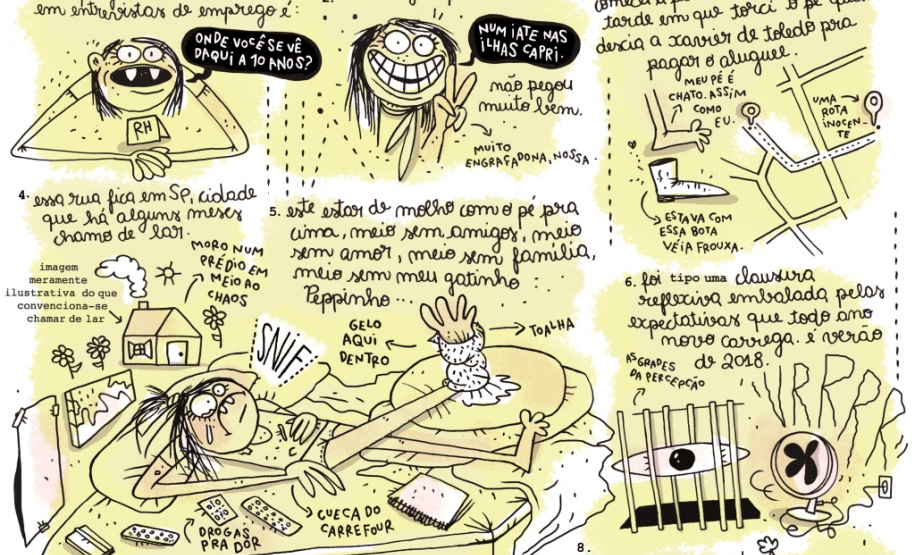 em entrevistas de emprego é:
ONDE VOCÊ SE VÊ
DAQUI A 10 ANOS?
RH
2.
NUM IATE NAS
ILHAS CAPRI.
não pegou
muito bem.
MUITO
ENGRAÇADONA, NOSSA.
tarde em que torci o pé
descia a xavier de toledo pra
pagar o aluguel.
MEU PÉ É
CHATO. ASSIM
COMO
EU.
UMA
ROTA
INOCEN-
TE
ESTAVA COM
ESSA BOTA
VÉIA FROUXA.
4. essa rua fica em SP, cidade
que há alguns meses
chamo de lar.
imagem
meramente
ilustrativa do que
convenciona-se
chamar de lar
MORO NUM
PRÉDIO EM
MEIO AO
CHAOS
5. este estar de molho com o pé pra
cima, meio sem amigos, meio
sem amor, meio sem família,
meio sem meu gatinho
Peppinho...
SNIF
GELO
AQUI
DENTRO
TOALHA
DROGAS
PRA DOR
CUECA DO
CARREFOUR
6. foi tipo uma clausura
reflexiva embalada pelas
expectativas que todo ano
novo carrega. é verão
de 2018.
AS GRADES
DA PERCEPÇÃO
VRRR
8.